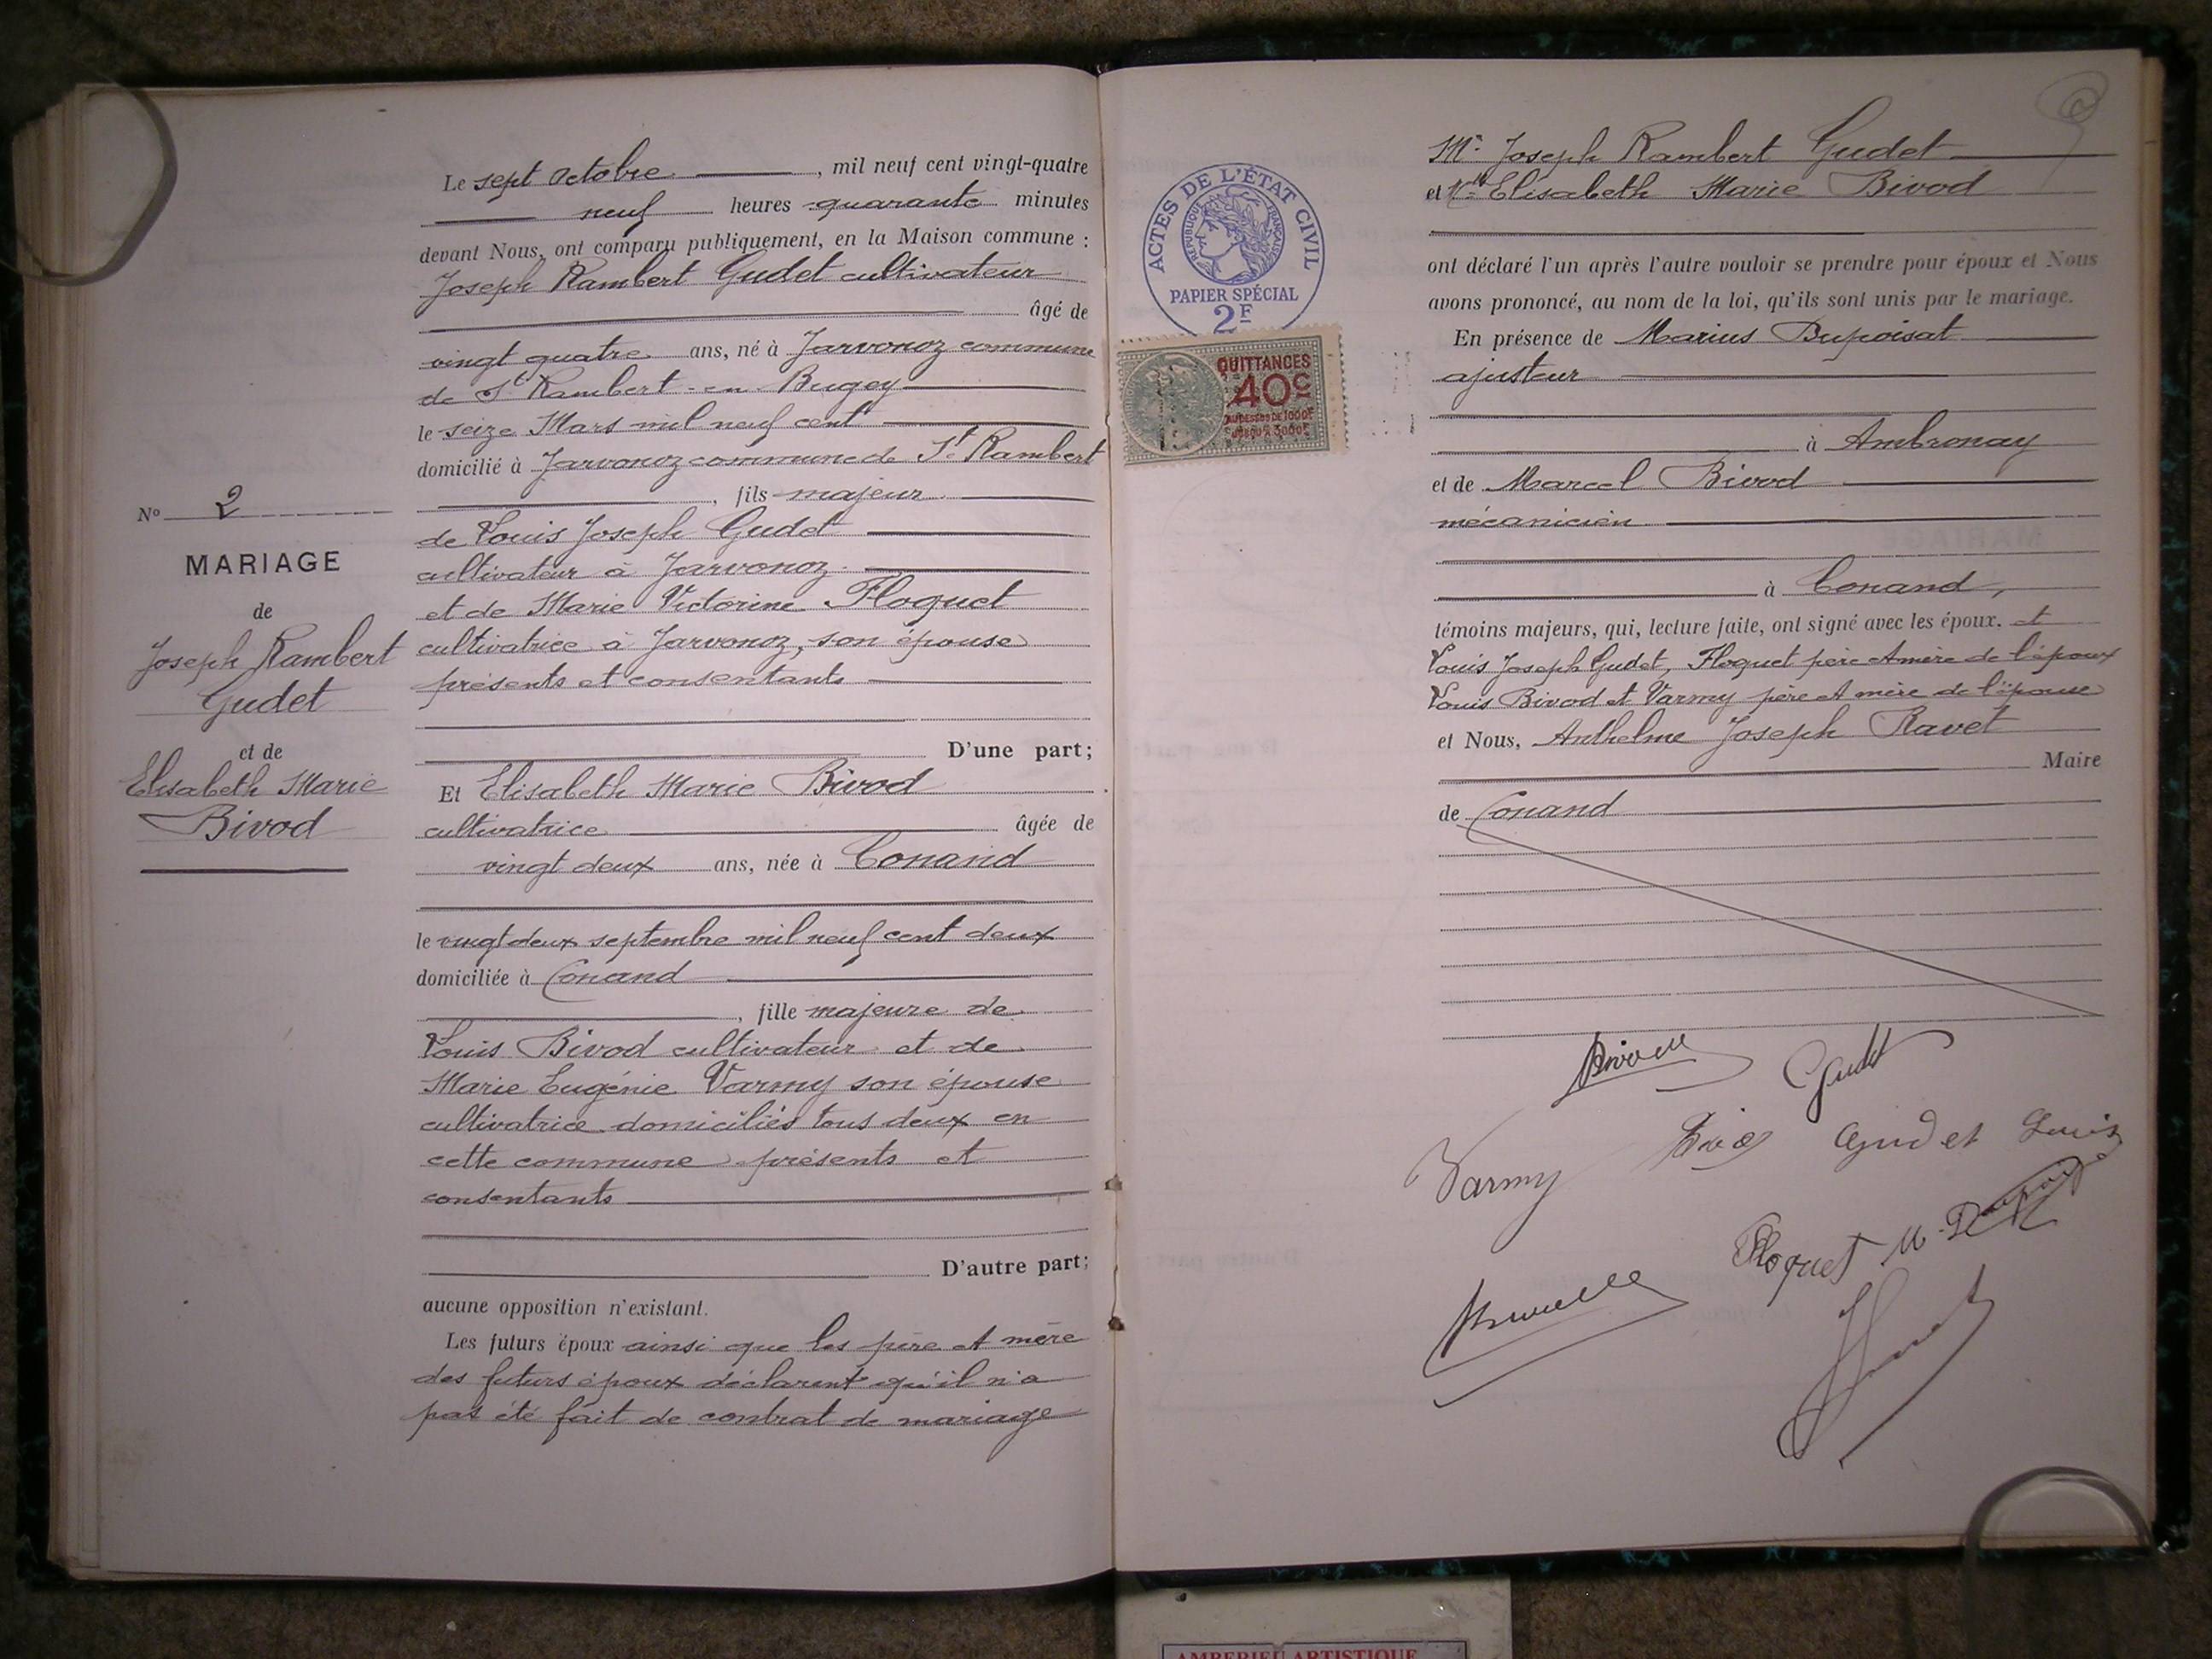 Le sept Octobre, mil neuf cent vingt-quatre
neuf heures quarante minutes
devant Nous, ont comparu publiquement, en la Maison commune :
Joseph Rambert Gudet cultivateur
âgé de
vingt quatre ans, né à Javornoz commune
de St Rambert-en-Bugey
le seize Mars mil neuf cent
domicilié à Javornoz commune de St Rambert
, fils majeur
de Louis Joseph Gudet
cultivateur à Javornoz
et de Marie Victorine Floquet
cultivatrice à Javornoz, son épouse
présents et consentants
D'une part;
No 2
MARIAGE
de
Joseph Rambert
Gudet
et de
Elisabeth Marie
Bivod
Et Elisabeth Marie Bivod
cultivatrice âgée de
vingt deux ans, née à Conand
le vingt deux septembre mil neuf cent deux
domiciliée à Conand
, fille majeure de
Louis Bivod cultivateur et de
Marie Eugénie Varmy son épouse
cultivatrice domiciliés tous deux en
cette commune présents et
consentants
D'autre part;
aucune opposition n'existant.
Les futurs époux ainsi que les père et mère
des futurs époux déclarent qu'il n'a
pas été fait de contrat de mariage
ACTES DE L'ÉTAT CIVIL
RÉPUBLIQUE FRANÇAISE
PAPIER SPÉCIAL
2F
QUITTANCES
40c
AU DESSUS DE 1000F
JUSQU'À 3000F
Mr Joseph Rambert Gudet
et Mlle Elisabeth Marie Bivod
ont déclaré l'un après l'autre vouloir se prendre pour époux et Nous
avons prononcé, au nom de la loi, qu'ils sont unis par le mariage.
En présence de Marius Dupoisat
ajusteur
à Ambronay
et de Marcel Bivod
mécanicien
à Conand,
témoins majeurs, qui, lecture faite, ont signé avec les époux. et
Louis Joseph Gudet, Floquet père et mère de l'époux
Louis Bivod et Varmy père et mère de l'épouse
et Nous, Anthelme Joseph Ravet
Maire
de Conand
Gudet
Varmy
Gudet Louis
Floquet
AMBERIEU ARTISTIQUE